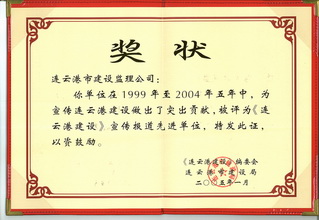 奖状
连云港市建设监理公司：
你单位在1999年至2004年五年中，为
宣传连云港建设做出了突出贡献，被评为《连
云港建设》宣传报道先进单位，特发此证，
以资鼓励。
《连云港建设》编委会
连云港市建设局
二〇〇五年一月